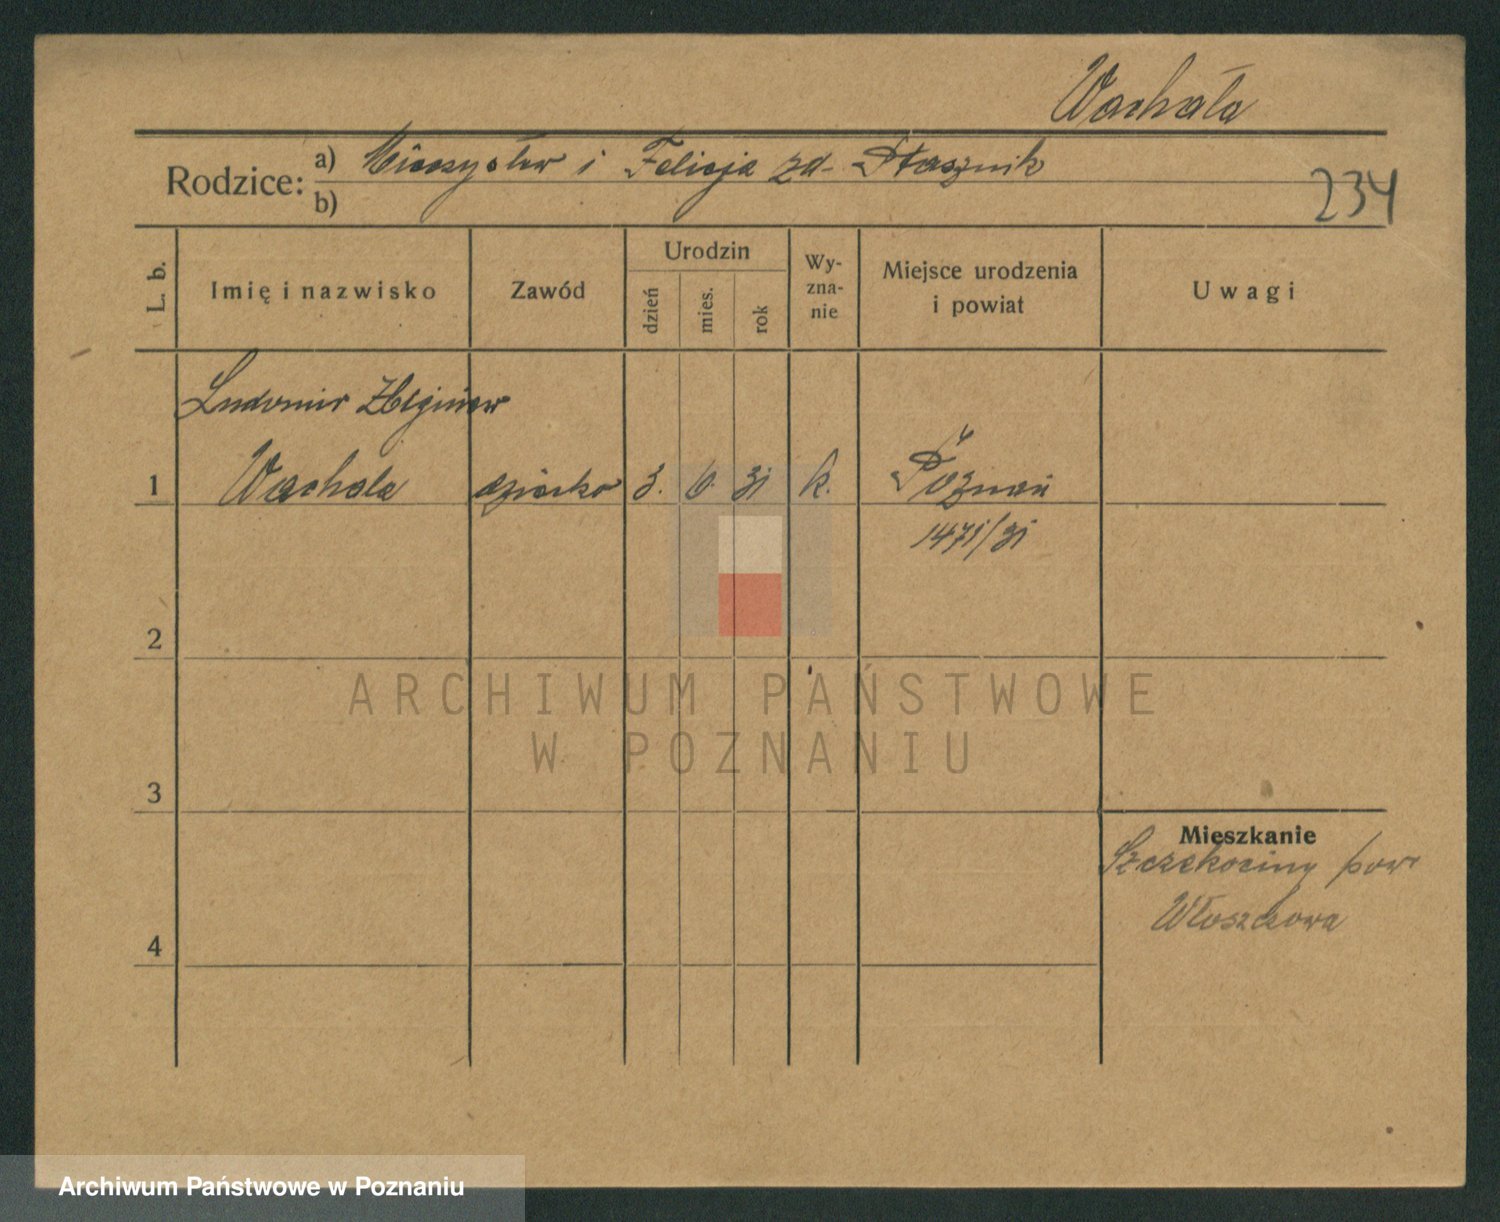 Wachała
Rodzice: a) Mieczysław i Felicja zd. Ptasznik
b)
234
L. b.
Imię i nazwisko
Zawód
Urodzin
dzień
mies.
rok
Wy-
zna-
nie
Miejsce urodzenia
i powiat
Uwagi
Ludomir Zbigniew
1 Wachala dziecko 3. 6. 31 k. Poznań
1471/31
2
3
4
Mieszkanie
Szczekociny pow
Włoszczowa
ARCHIWUM PAŃSTWOWE
W POZNANIU
Archiwum Państwowe w Poznaniu